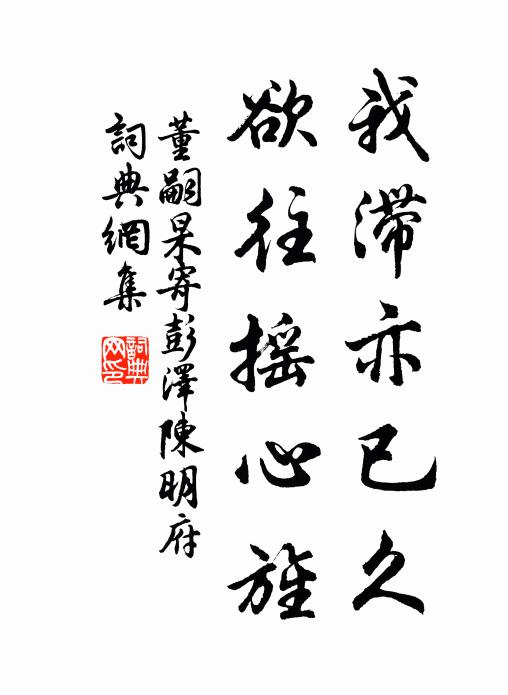 我滯亦已久
欲往摇心旌
董嗣杲寄彭澤陳明府
詞典網集
詞典网印